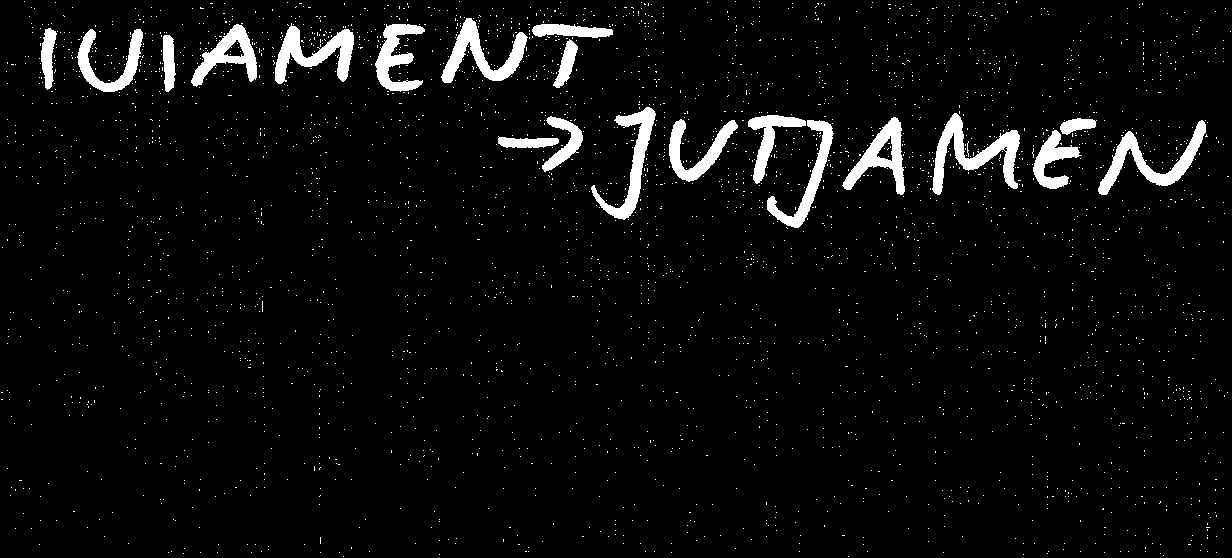 IUIAMENT
→JUTJAMEN